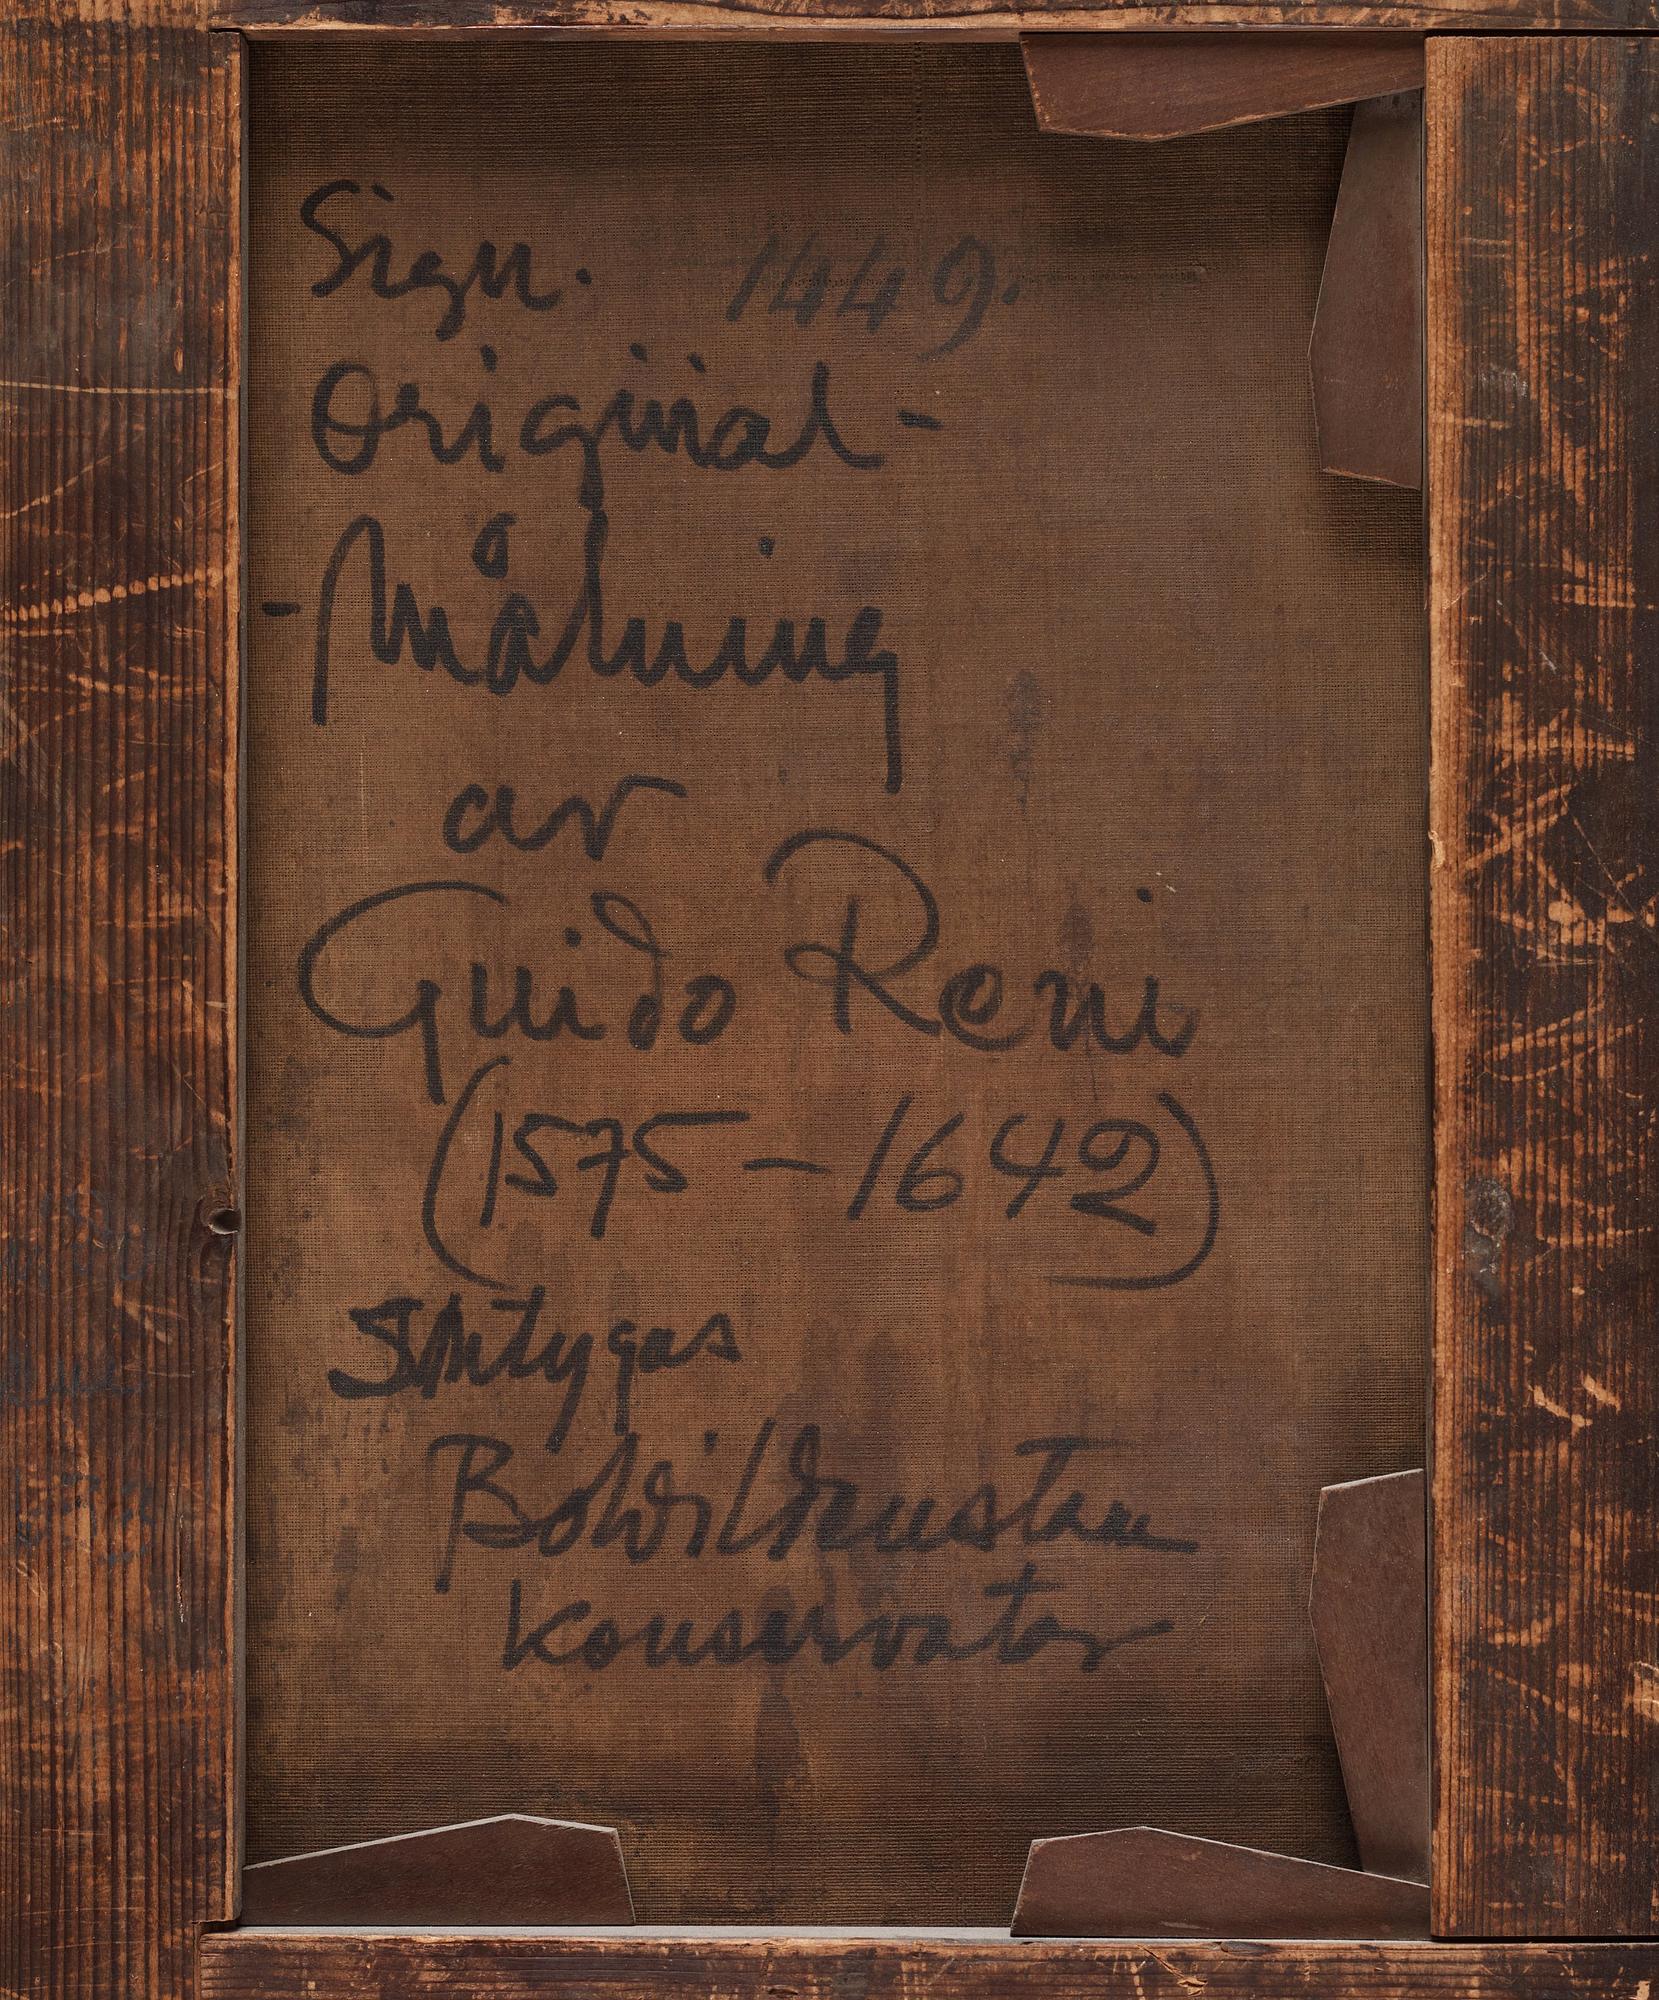 Sign. 1449.
Original-
-Målning
av
Guido Reni
(1575-1642)
Intygas
Konservator